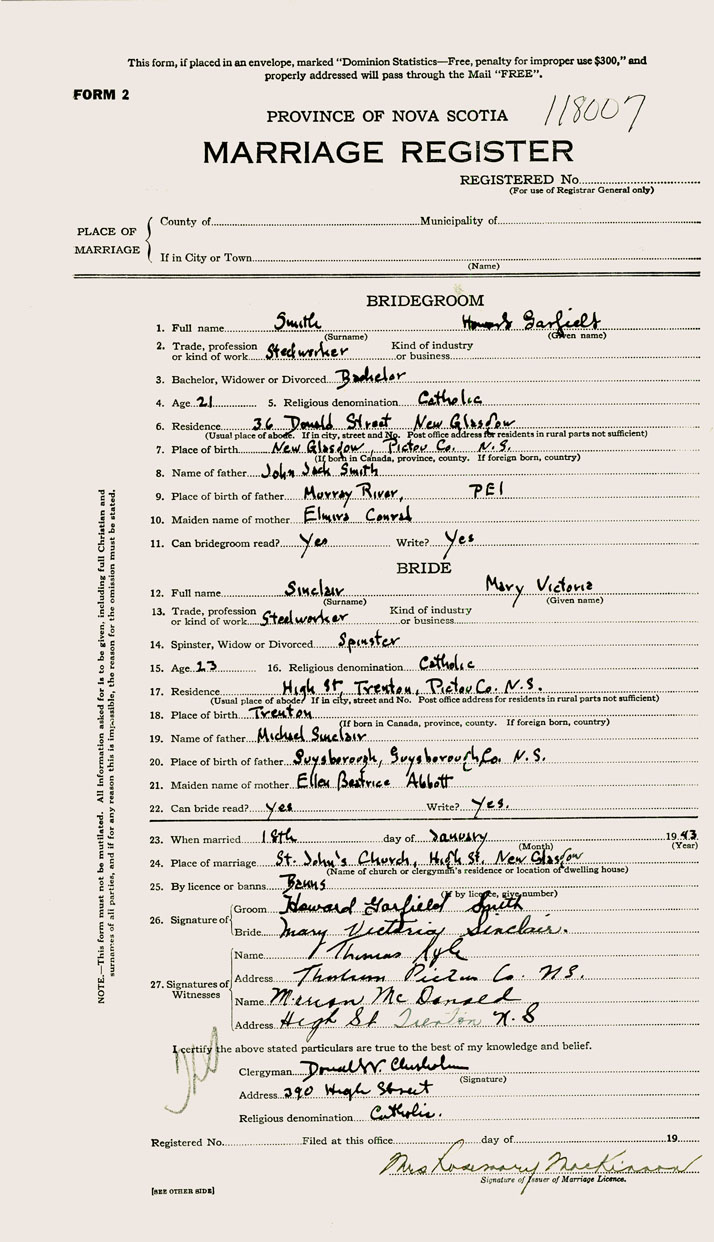 This form, if placed in an envelope, marked "Dominion Statistics—Free, penalty for improper use $300," and
properly addressed will pass through the Mail "FREE".
FORM 2
PROVINCE OF NOVA SCOTIA 118007
MARRIAGE REGISTER
REGISTERED No.
(For use of Registrar General only)
PLACE OF MARRIAGE
County of Municipality of
If in City or Town
(Name)
BRIDEGROOM
1. Full name Smith Howard Garfield
(Surname) (Given name)
2. Trade, profession or kind of work Steelworker Kind of industry or business
3. Bachelor, Widower or Divorced Bachelor
4. Age 21 5. Religious denomination Catholic
6. Residence 36 Donald Street New Glasgow
(Usual place of abode. If in city, street and No. Post office address for residents in rural parts not sufficient)
7. Place of birth New Glasgow, Pictou Co. N.S.
(If born in Canada, province, county. If foreign born, country)
8. Name of father John Jack Smith
9. Place of birth of father Murray River, PEI
10. Maiden name of mother Elmira Conrad
11. Can bridegroom read? Yes Write? Yes
BRIDE
12. Full name Sinclair Mary Victoria
(Surname) (Given name)
13. Trade, profession or kind of work Steelworker Kind of industry or business
14. Spinster, Widow or Divorced Spinster
15. Age 23 16. Religious denomination Catholic
17. Residence High St, Trenton, Pictou Co. N.S.
(Usual place of abode. If in city, street and No. Post office address for residents in rural parts not sufficient)
18. Place of birth Trenton
(If born in Canada, province, county. If foreign born, country)
19. Name of father Michael Sinclair
20. Place of birth of father Guysborough, Guysborough Co. N.S.
21. Maiden name of mother Ellen Beatrice Abbott
22. Can bride read? Yes Write? Yes.
23. When married 18th day of January 1943
(Month) (Year)
24. Place of marriage St. John's Church, High St. New Glasgow
(Name of church or clergyman's residence or location of dwelling house)
25. By licence or banns Banns
(If by licence, give number)
26. Signature of
Groom Howard Garfield Smith
Bride Mary Victoria Sinclair.
27. Signatures of Witnesses
Name Thomas Kyle
Address Pictou Co. N.S.
Name Merion McDonald
Address High St Trenton N.S
I certify the above stated particulars are true to the best of my knowledge and belief.
Clergyman Donald W. Chisholm
(Signature)
Address 390 High Street
Religious denomination Catholic.
Registered No. Filed at this office day of 19
Mrs Rosemary MacKinnon
Signature of Issuer of Marriage Licence.
[SEE OTHER SIDE]
NOTE.—This form must not be mutilated. All information asked for is to be given, including full Christian and
surnames of all parties, and if for any reason this is impossible, the reason for the omission must be stated.